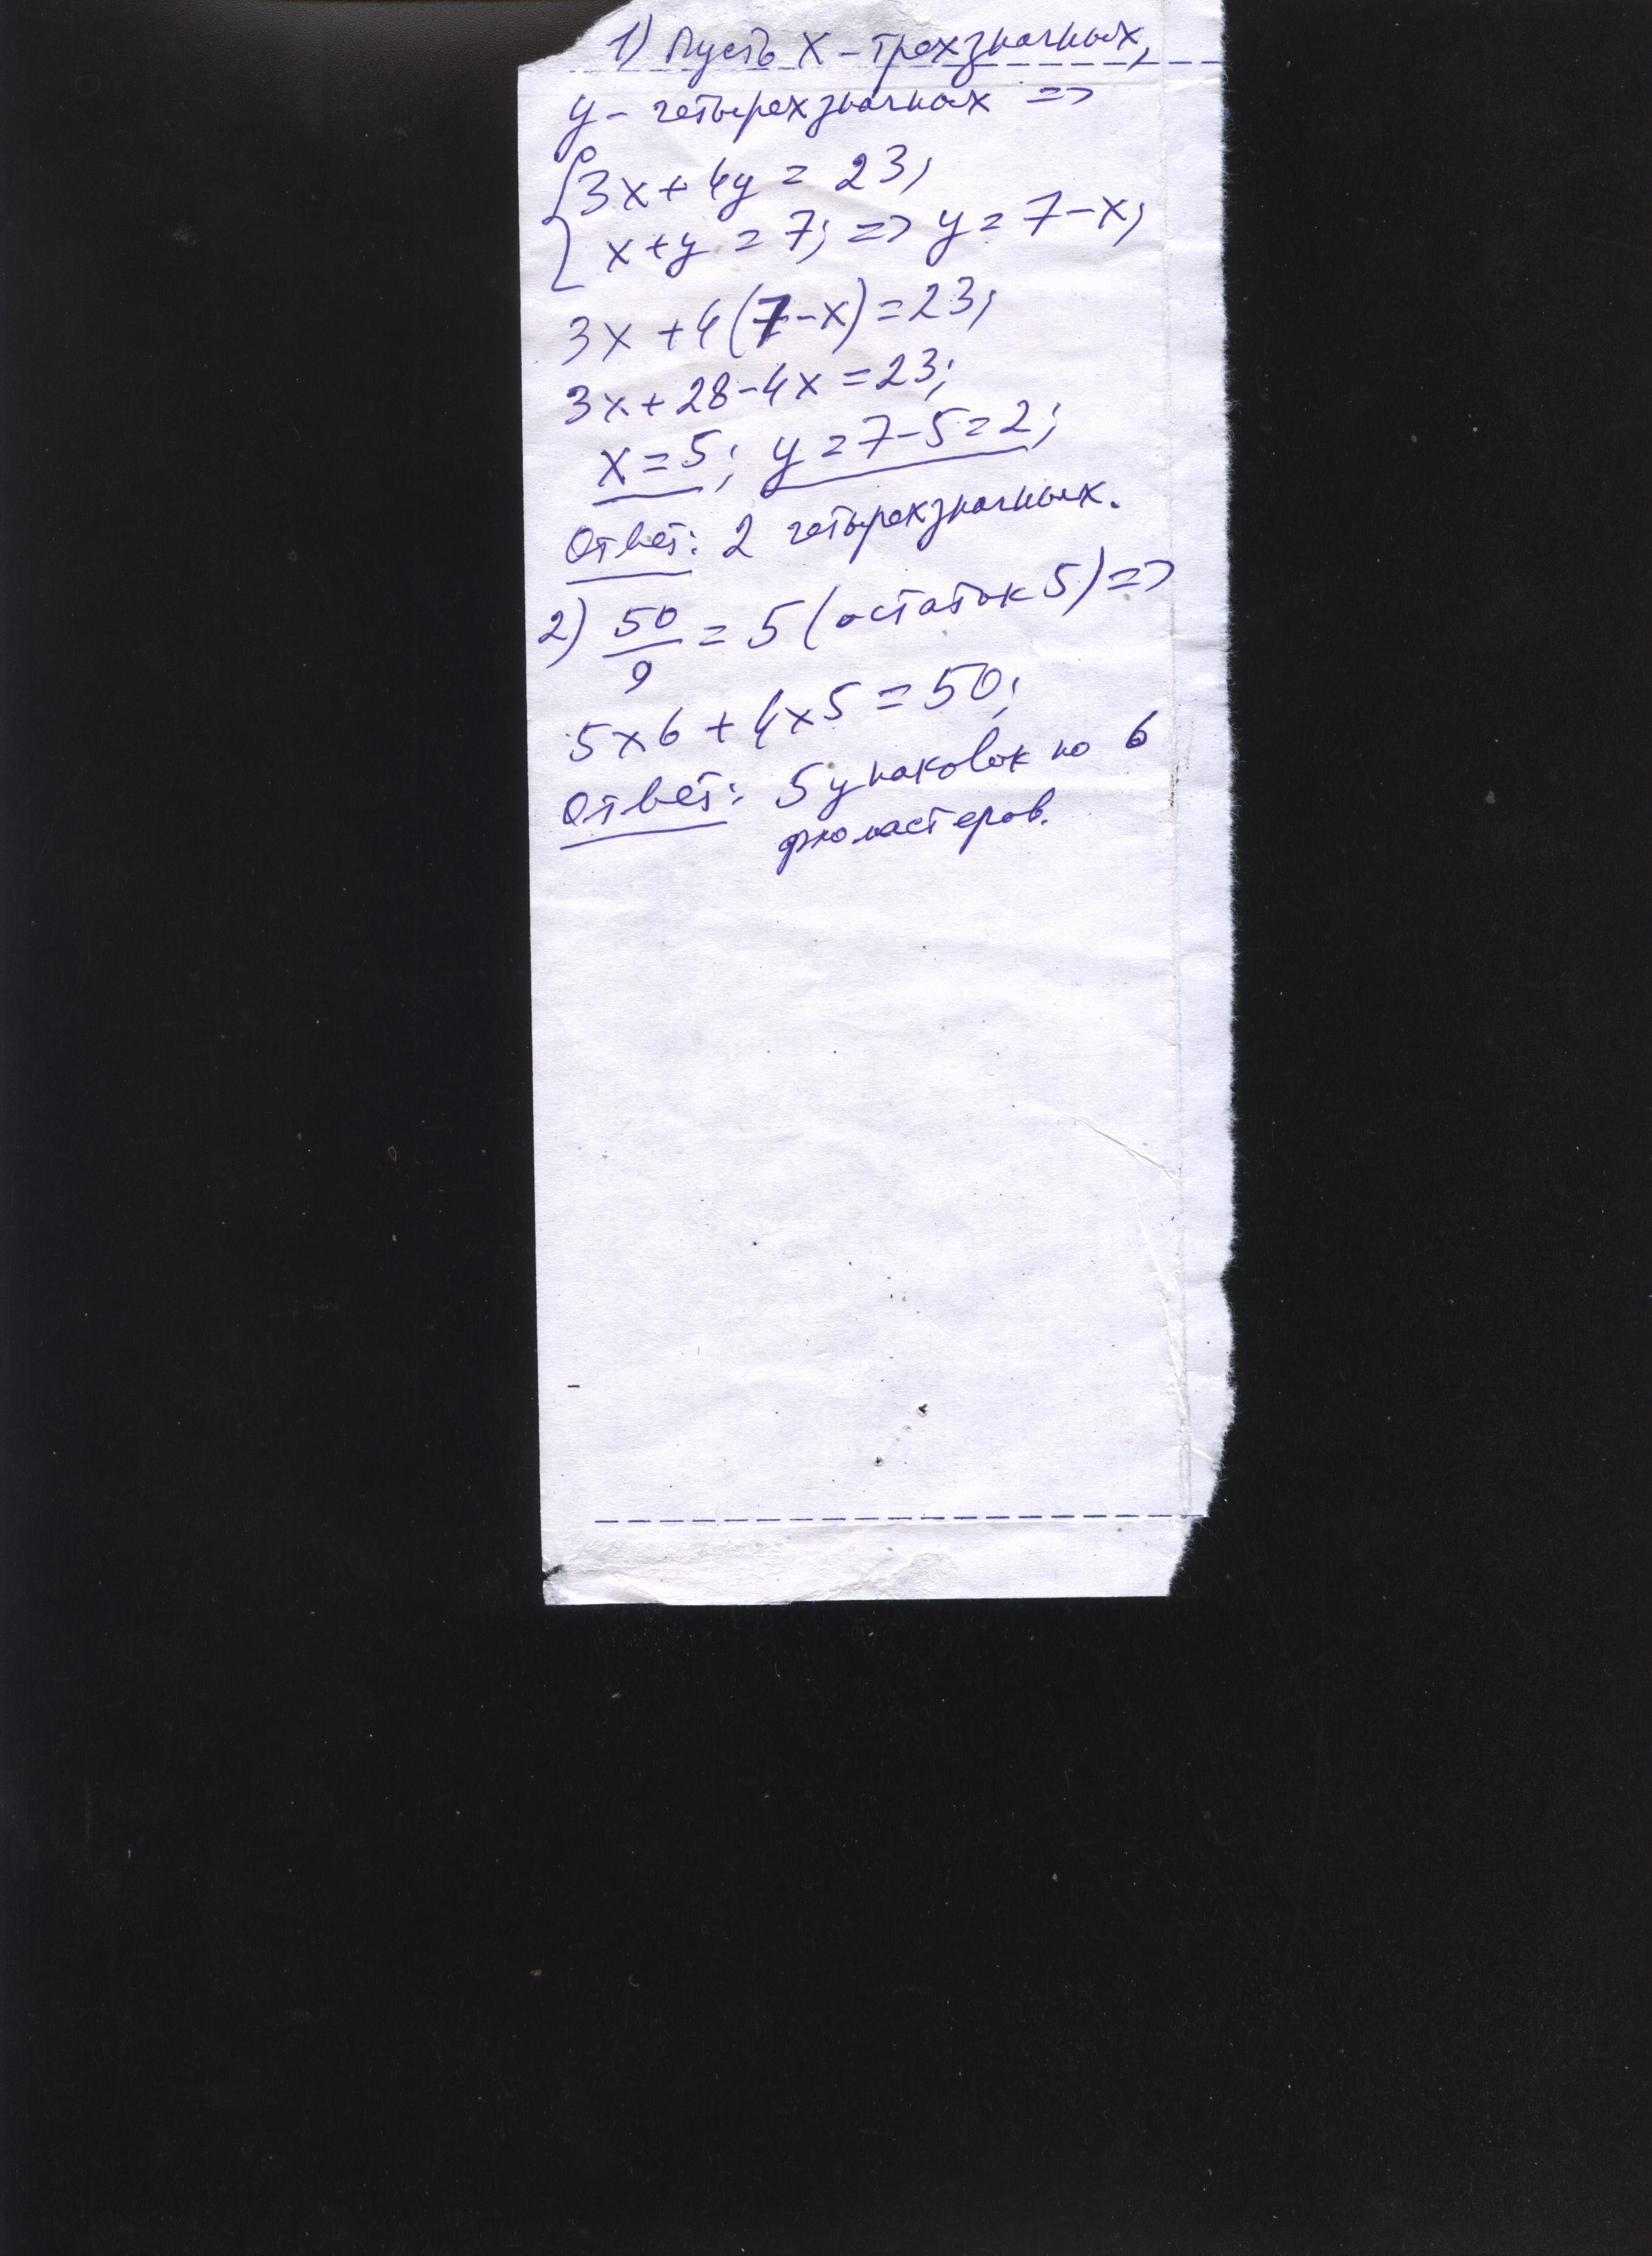 1) Пусть x - трехзначных,
y - четырехзначных =>
{ 3x + 4y = 23;
x + y = 7; => y = 7 - x;
3x + 4(7 - x) = 23;
3x + 28 - 4x = 23;
x = 5; y = 7 - 5 = 2;
Ответ: 2 четырехзначных.
2) 50/9 = 5 (остаток 5) =>
5 x 6 + 4 x 5 = 50;
Ответ: 5 упаковок по 6
фломастеров.